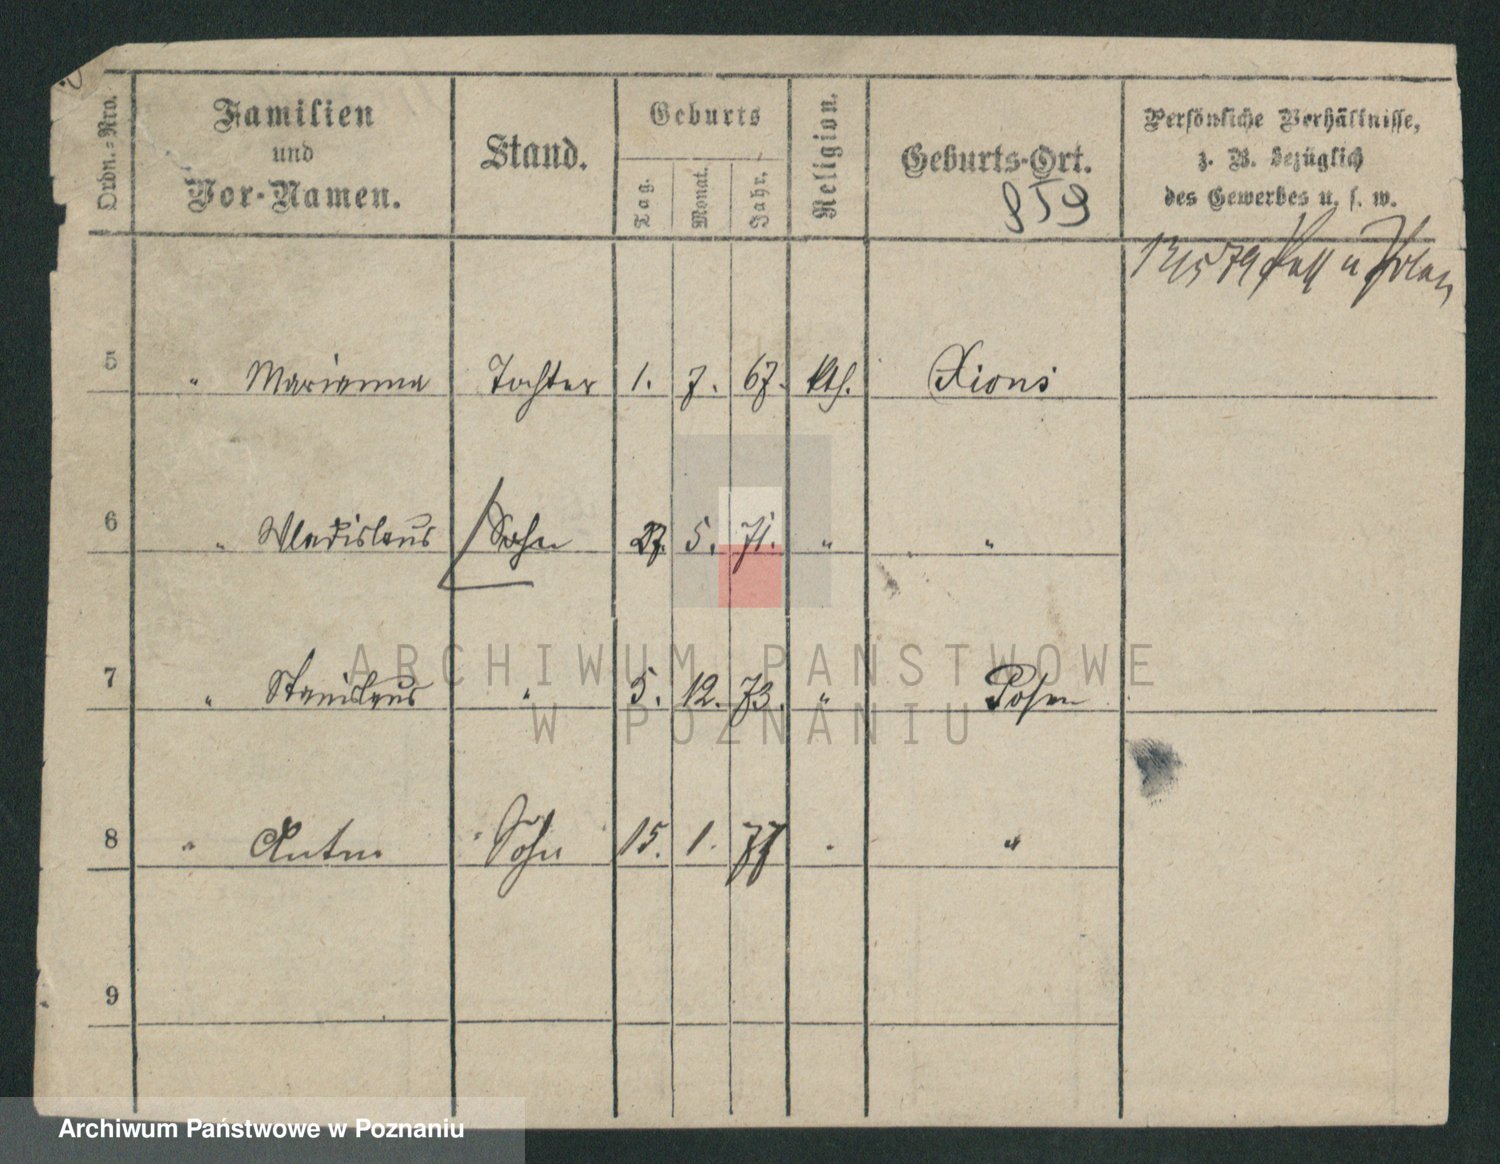 Ordn.=Nro.
Familien
und
Vor-Namen.
Stand.
Geburts
Tag.
Monat.
Jahr.
Religion.
Geburts-Ort.
859
Persönliche Verhältnisse,
z. B. bezüglich
des Gewerbes u. s. w.
12/5 79 u
5 " Marianna Tochter 1. 7. 67. kth. Xions
6 " Wladislaus Sohn 27. 5. 71. " "
7 " Stanislaus " 5. 12. 73. " Posen
8 " Anton Sohn 15. 1. 77 " "
9
ARCHIWUM PAŃSTWOWE
W POZNANIU
Archiwum Państwowe w Poznaniu